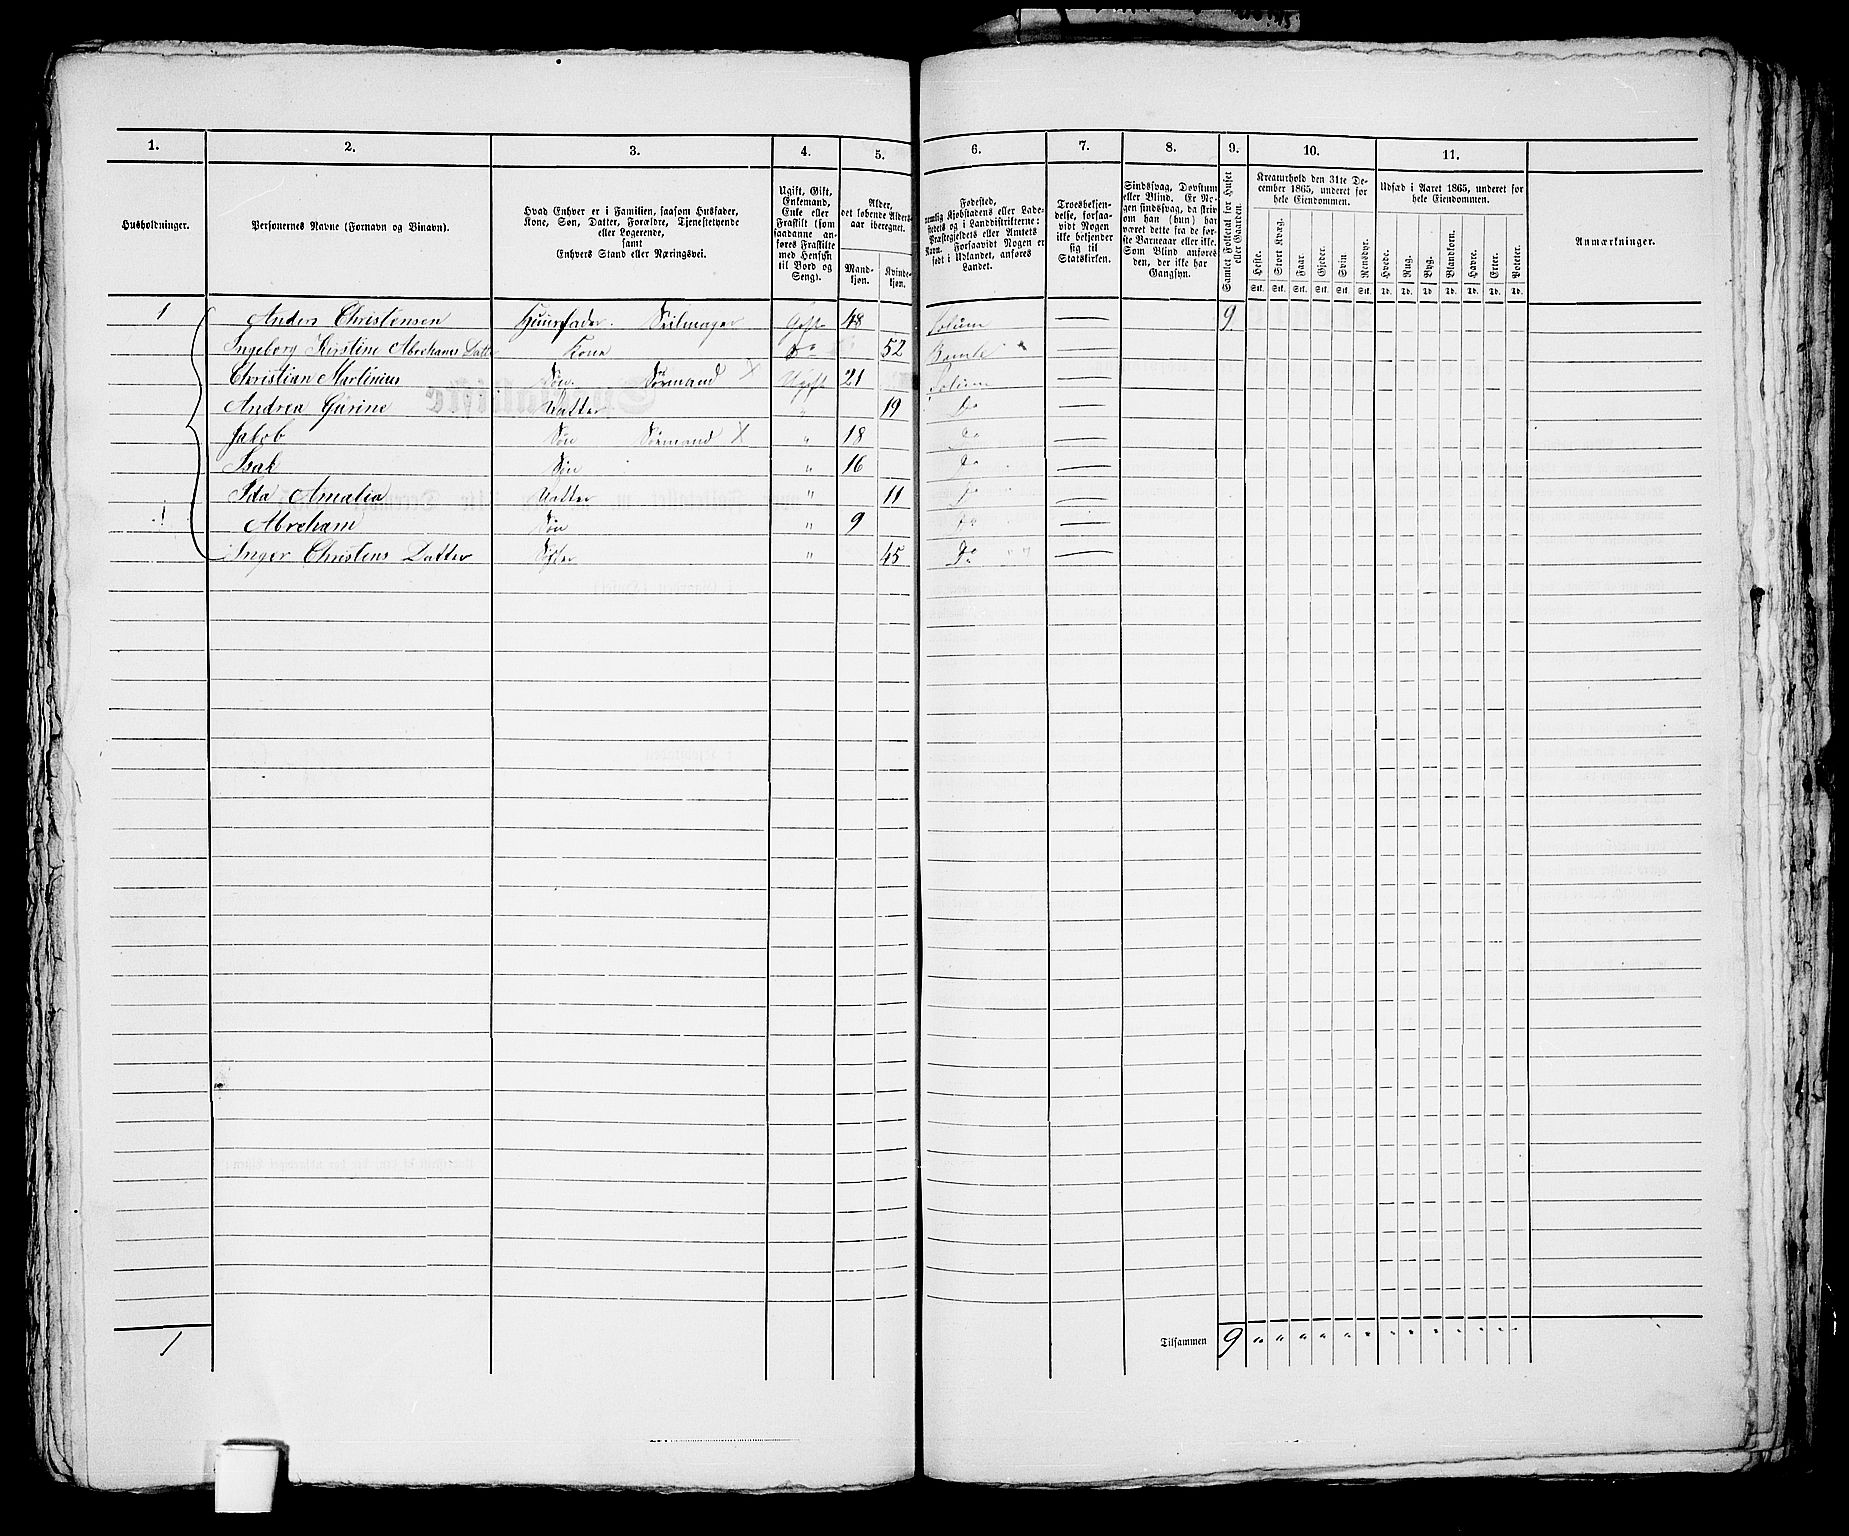 1. 2. 3. 4. 5. 6. 7. 8. 9. 10. 11.
Husholdninger.
Personernes Navne (Fornavn og Binavn).
Hvad Enhver er i Familien, saasom Husfader,
Kone, Søn, Datter, Forældre, Tjenestetyende
eller Logerende,
samt
Enhvers Stand eller Næringsvei.
Ugift, Gift,
Enkemand,
Enke eller
Fraskilt (som
saadanne an-
føres Fraskilte
med Hensyn
til Bord og
Seng).
Alder,
det løbende Alders-
aar iberegnet.
Mand-
kjøn.
Kvinde-
kjøn.
Fødested,
nemlig Kjøbstadens eller Lade-
stedets og i Landdistrikterne:
Præstegjeldets eller Amtets
Navn. Forsaavidt Nogen er
født i Udlandet, anføres
Landet.
Troesbekjen-
delse, forsaa-
vidt Nogen
ikke bekjender
sig til
Statskirken.
Sindssvag, Døvstum
eller Blind. Er No-
gen sindssvag, da skriv
om han (hun) har
været dette fra de før-
ste Barneaar eller ikke.
Som Blind anføres
den, der ikke har
Gangsyn.
Samlet Folketal for Huset
eller Gaarden.
Kreaturhold den 31te De-
cember 1865, underet for
hele Eiendommen.
Heste. Stort Kvæg. Faar. Gjeder. Svin Rensdyr.
Stk. Stk. Stk. Stk. Stk. Stk.
Udsæd i Aaret 1865, underet for
hele Eiendommen.
Hvede. Rug. Byg. Blandkorn. Havre. Erter. Poteter.
Td. Td. Td. Td. Td. Td. Td.
Anmærkninger.
1 Anders Christensen Huusfader. Seilmager Gift 48 Solum 9
Ingeborg Kirstine Abrehams Datter Kone Do 52 Bamle
Christian Martinius Søn. Sømand X Ugift 21 Solum
Andrea Gurine Datter " 19 Do
Jakob Søn Sømand X " 18 Do
Isak Søn " 16 Do
Ida Amalia Datter " 11 Do
1 Abreham Søn " 9 Do
Inger Christens Datter Søster " 45 Do
1 Tilsammen 9 " " " " " " " " " " " " "